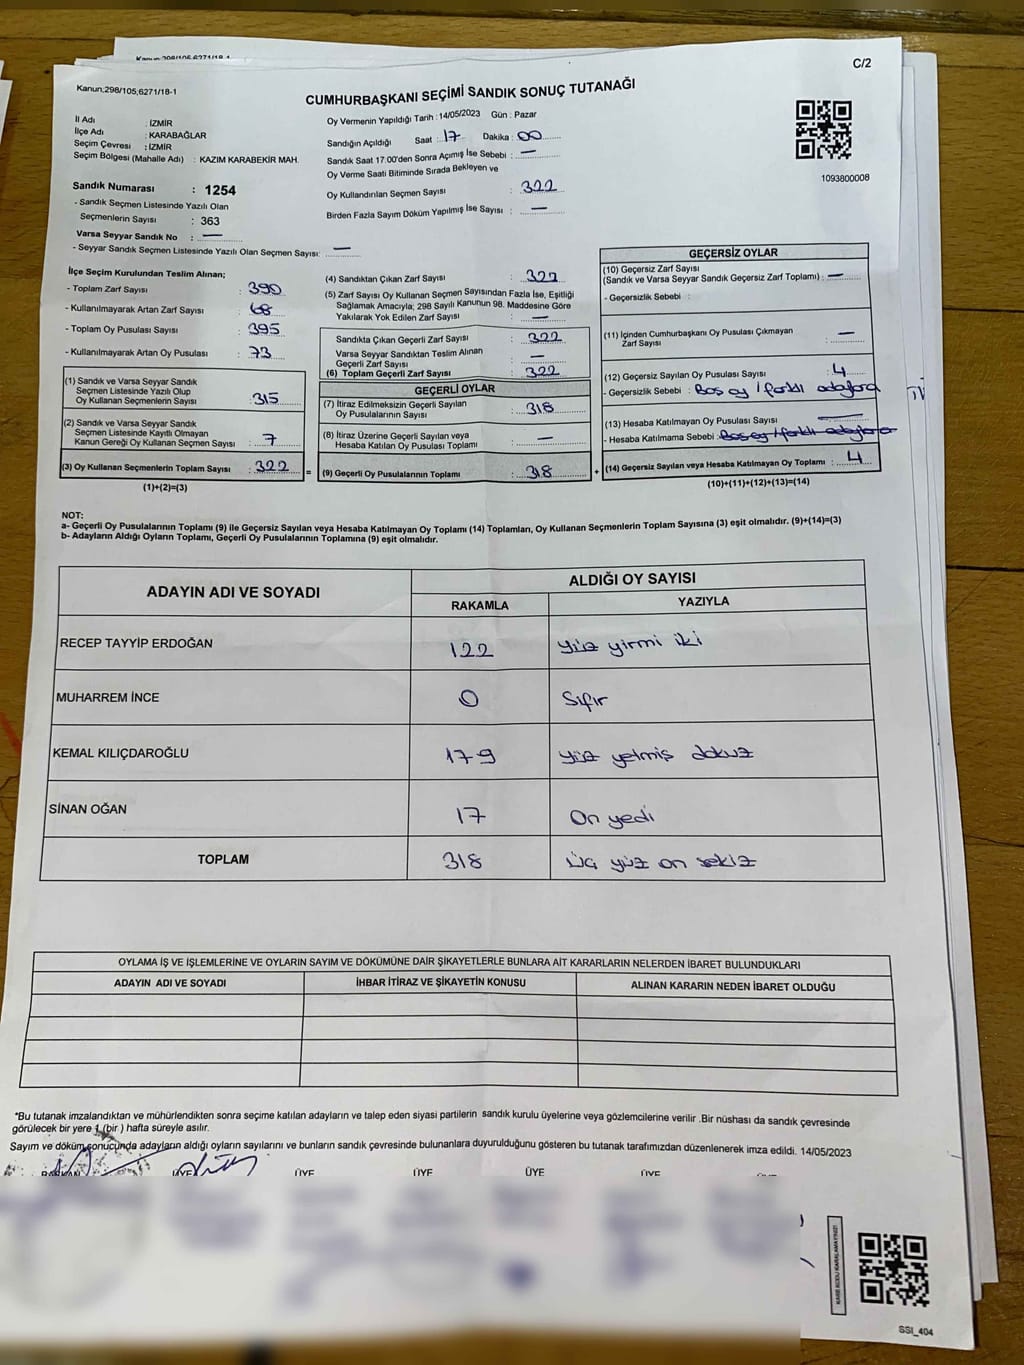 Kanun;298/105,6271/18-1
C/2
CUMHURBAŞKANI SEÇİMİ SANDIK SONUÇ TUTANAĞI
İl Adı : İZMİR
İlçe Adı : KARABAĞLAR
Seçim Çevresi : İZMİR
Seçim Bölgesi (Mahalle Adı) : KAZIM KARABEKİR MAH.
Sandık Numarası : 1254
- Sandık Seçmen Listesinde Yazılı Olan
Seçmenlerin Sayısı : 363
Varsa Seyyar Sandık No : —
- Seyyar Sandık Seçmen Listesinde Yazılı Olan Seçmen Sayısı: —
Oy Vermenin Yapıldığı Tarih : 14/05/2023 Gün : Pazar
Sandığın Açıldığı Saat : 17 Dakika : 00
Sandık Saat 17:00'den Sonra Açımış İse Sebebi : —
Oy Verme Saati Bitiminde Sırada Bekleyen ve
Oy Kullandırılan Seçmen Sayısı : 322
Birden Fazla Sayım Döküm Yapılmış İse Sayısı : —
1093800008
İlçe Seçim Kurulundan Teslim Alınan;
- Toplam Zarf Sayısı : 390
- Kullanılmayarak Artan Zarf Sayısı : 68
- Toplam Oy Pusulası Sayısı : 395
- Kullanılmayarak Artan Oy Pusulası : 73
(1) Sandık ve Varsa Seyyar Sandık
Seçmen Listesinde Yazılı Olup
Oy Kullanan Seçmenlerin Sayısı : 315
(2) Sandık ve Varsa Seyyar Sandık
Seçmen Listesinde Kayıtlı Olmayan
Kanun Gereği Oy Kullanan Seçmen Sayısı : 7
(3) Oy Kullanan Seçmenlerin Toplam Sayısı : 322 =
(1)+(2)=(3)
(4) Sandıktan Çıkan Zarf Sayısı : 322
(5) Zarf Sayısı Oy Kullanan Seçmen Sayısından Fazla İse, Eşitliği
Sağlamak Amacıyla; 298 Sayılı Kanunun 98. Maddesine Göre
Yakılarak Yok Edilen Zarf Sayısı : —
Sandıkta Çıkan Geçerli Zarf Sayısı : 322
Varsa Seyyar Sandıktan Teslim Alınan
Geçerli Zarf Sayısı : —
(6) Toplam Geçerli Zarf Sayısı : 322
GEÇERLİ OYLAR
(7) İtiraz Edilmeksizin Geçerli Sayılan
Oy Pusulalarının Sayısı : 318
(8) İtiraz Üzerine Geçerli Sayılan veya
Hesaba Katılan Oy Pusulası Toplamı : —
(9) Geçerli Oy Pusulalarının Toplamı : 318 +
GEÇERSİZ OYLAR
(10) Geçersiz Zarf Sayısı
(Sandık ve Varsa Seyyar Sandık Geçersiz Zarf Toplamı) : —
- Geçersizlik Sebebi :
(11) İçinden Cumhurbaşkanı Oy Pusulası Çıkmayan
Zarf Sayısı : —
(12) Geçersiz Sayılan Oy Pusulası Sayısı : 4
- Geçersizlik Sebebi : Boş oy / farklı adaylara
(13) Hesaba Katılmayan Oy Pusulası Sayısı : —
- Hesaba Katılmama Sebebi : Boş oy / farklı adaylara
(14) Geçersiz Sayılan veya Hesaba Katılmayan Oy Toplamı : 4
(10)+(11)+(12)+(13)=(14)
NOT:
a- Geçerli Oy Pusulalarının Toplamı (9) ile Geçersiz Sayılan veya Hesaba Katılmayan Oy Toplamı (14) Toplamları, Oy Kullanan Seçmenlerin Toplam Sayısına (3) eşit olmalıdır. (9)+(14)=(3)
b- Adayların Aldığı Oyların Toplamı, Geçerli Oy Pusulalarının Toplamına (9) eşit olmalıdır.
ADAYIN ADI VE SOYADI
ALDIĞI OY SAYISI
RAKAMLA YAZIYLA
RECEP TAYYİP ERDOĞAN 122 Yüz yirmi iki
MUHARREM İNCE 0 Sıfır
KEMAL KILIÇDAROĞLU 179 yüz yetmiş dokuz
SİNAN OĞAN 17 On yedi
TOPLAM 318 Üç yüz on sekiz
OYLAMA İŞ VE İŞLEMLERİNE VE OYLARIN SAYIM VE DÖKÜMÜNE DAİR ŞİKAYETLERLE BUNLARA AİT KARARLARIN NELERDEN İBARET BULUNDUKLARI
ADAYIN ADI VE SOYADI İHBAR İTİRAZ VE ŞİKAYETİN KONUSU ALINAN KARARIN NEDEN İBARET OLDUĞU
*Bu tutanak imzalandıktan ve mühürlendikten sonra seçime katılan adayların ve talep eden siyasi partilerin sandık kurulu üyelerine veya gözlemcilerine verilir .Bir nüshası da sandık çevresinde
görülecek bir yere 1 (bir ) hafta süreyle asılır.
Sayım ve döküm sonucunda adayların aldığı oyların sayılarını ve bunların sandık çevresinde bulunanlara duyurulduğunu gösteren bu tutanak tarafımızdan düzenlenerek imza edildi. 14/05/2023
BAŞKAN ÜYE ÜYE ÜYE ÜYE ÜYE
KARE KODU KARALAMAYINIZ!
SSI_404